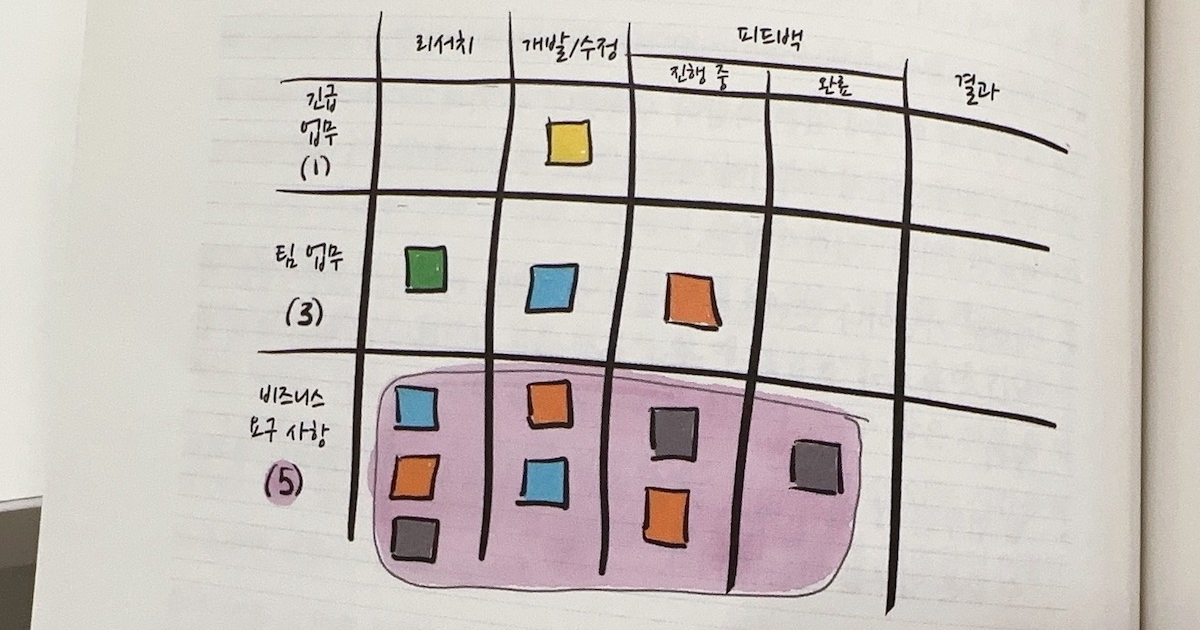 리서치
개발/수정
피드백
진행 중
완료
결과
긴급
업무
(1)
팀 업무
(3)
비즈니스
요구 사항
(5)